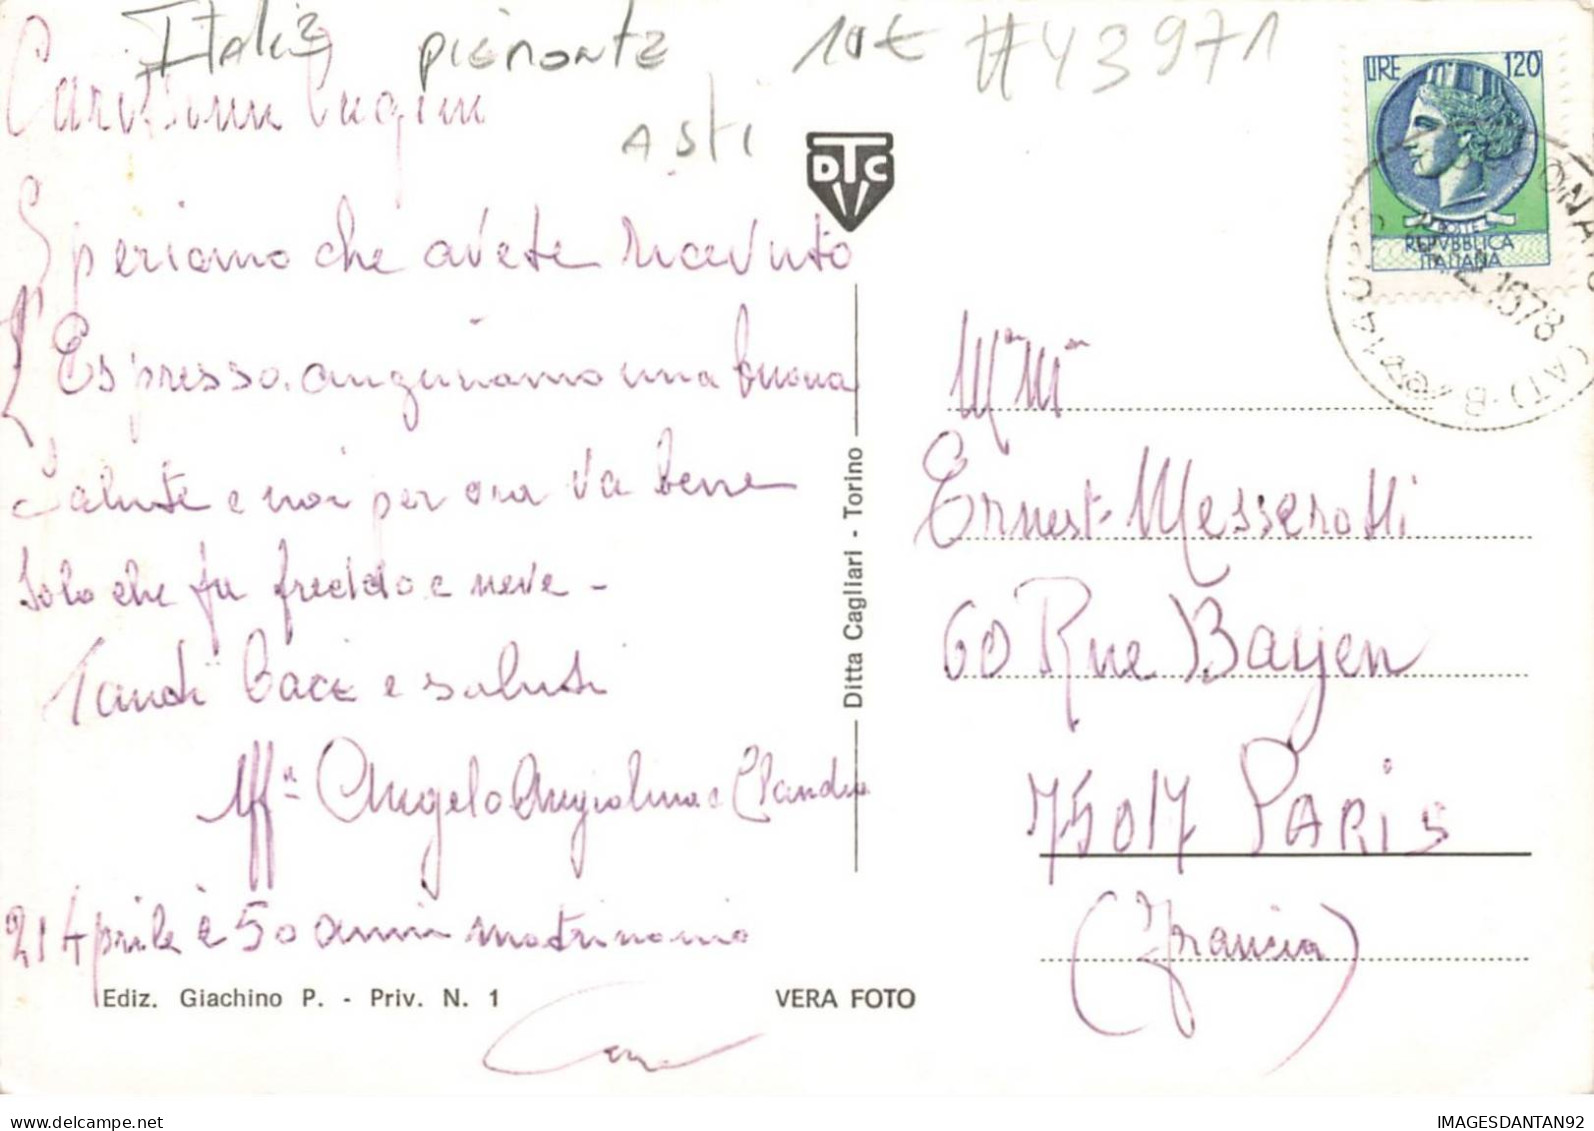 Italie piemonte 10€ #43971
asti
Carissimi Cugini
Speriamo che avete ricevuto
L'Espresso. auguriamo una buona
salute e noi per ora va bene
solo che fa freddo e neve -
Tanti baci e saluti
Angelo Angiolina e Claudia
21 Aprile è 50 anni matrimonio
Ediz. Giachino P. - Priv. N. 1
VERA FOTO
DTC
Ditta Cagliari - Torino
LIRE 120
POSTE
REPVBBLICA
ITALIANA
Ernest Messerotti
60 Rue Bayen
75017 PARIS
(Francia)
IMAGESDANTAN92